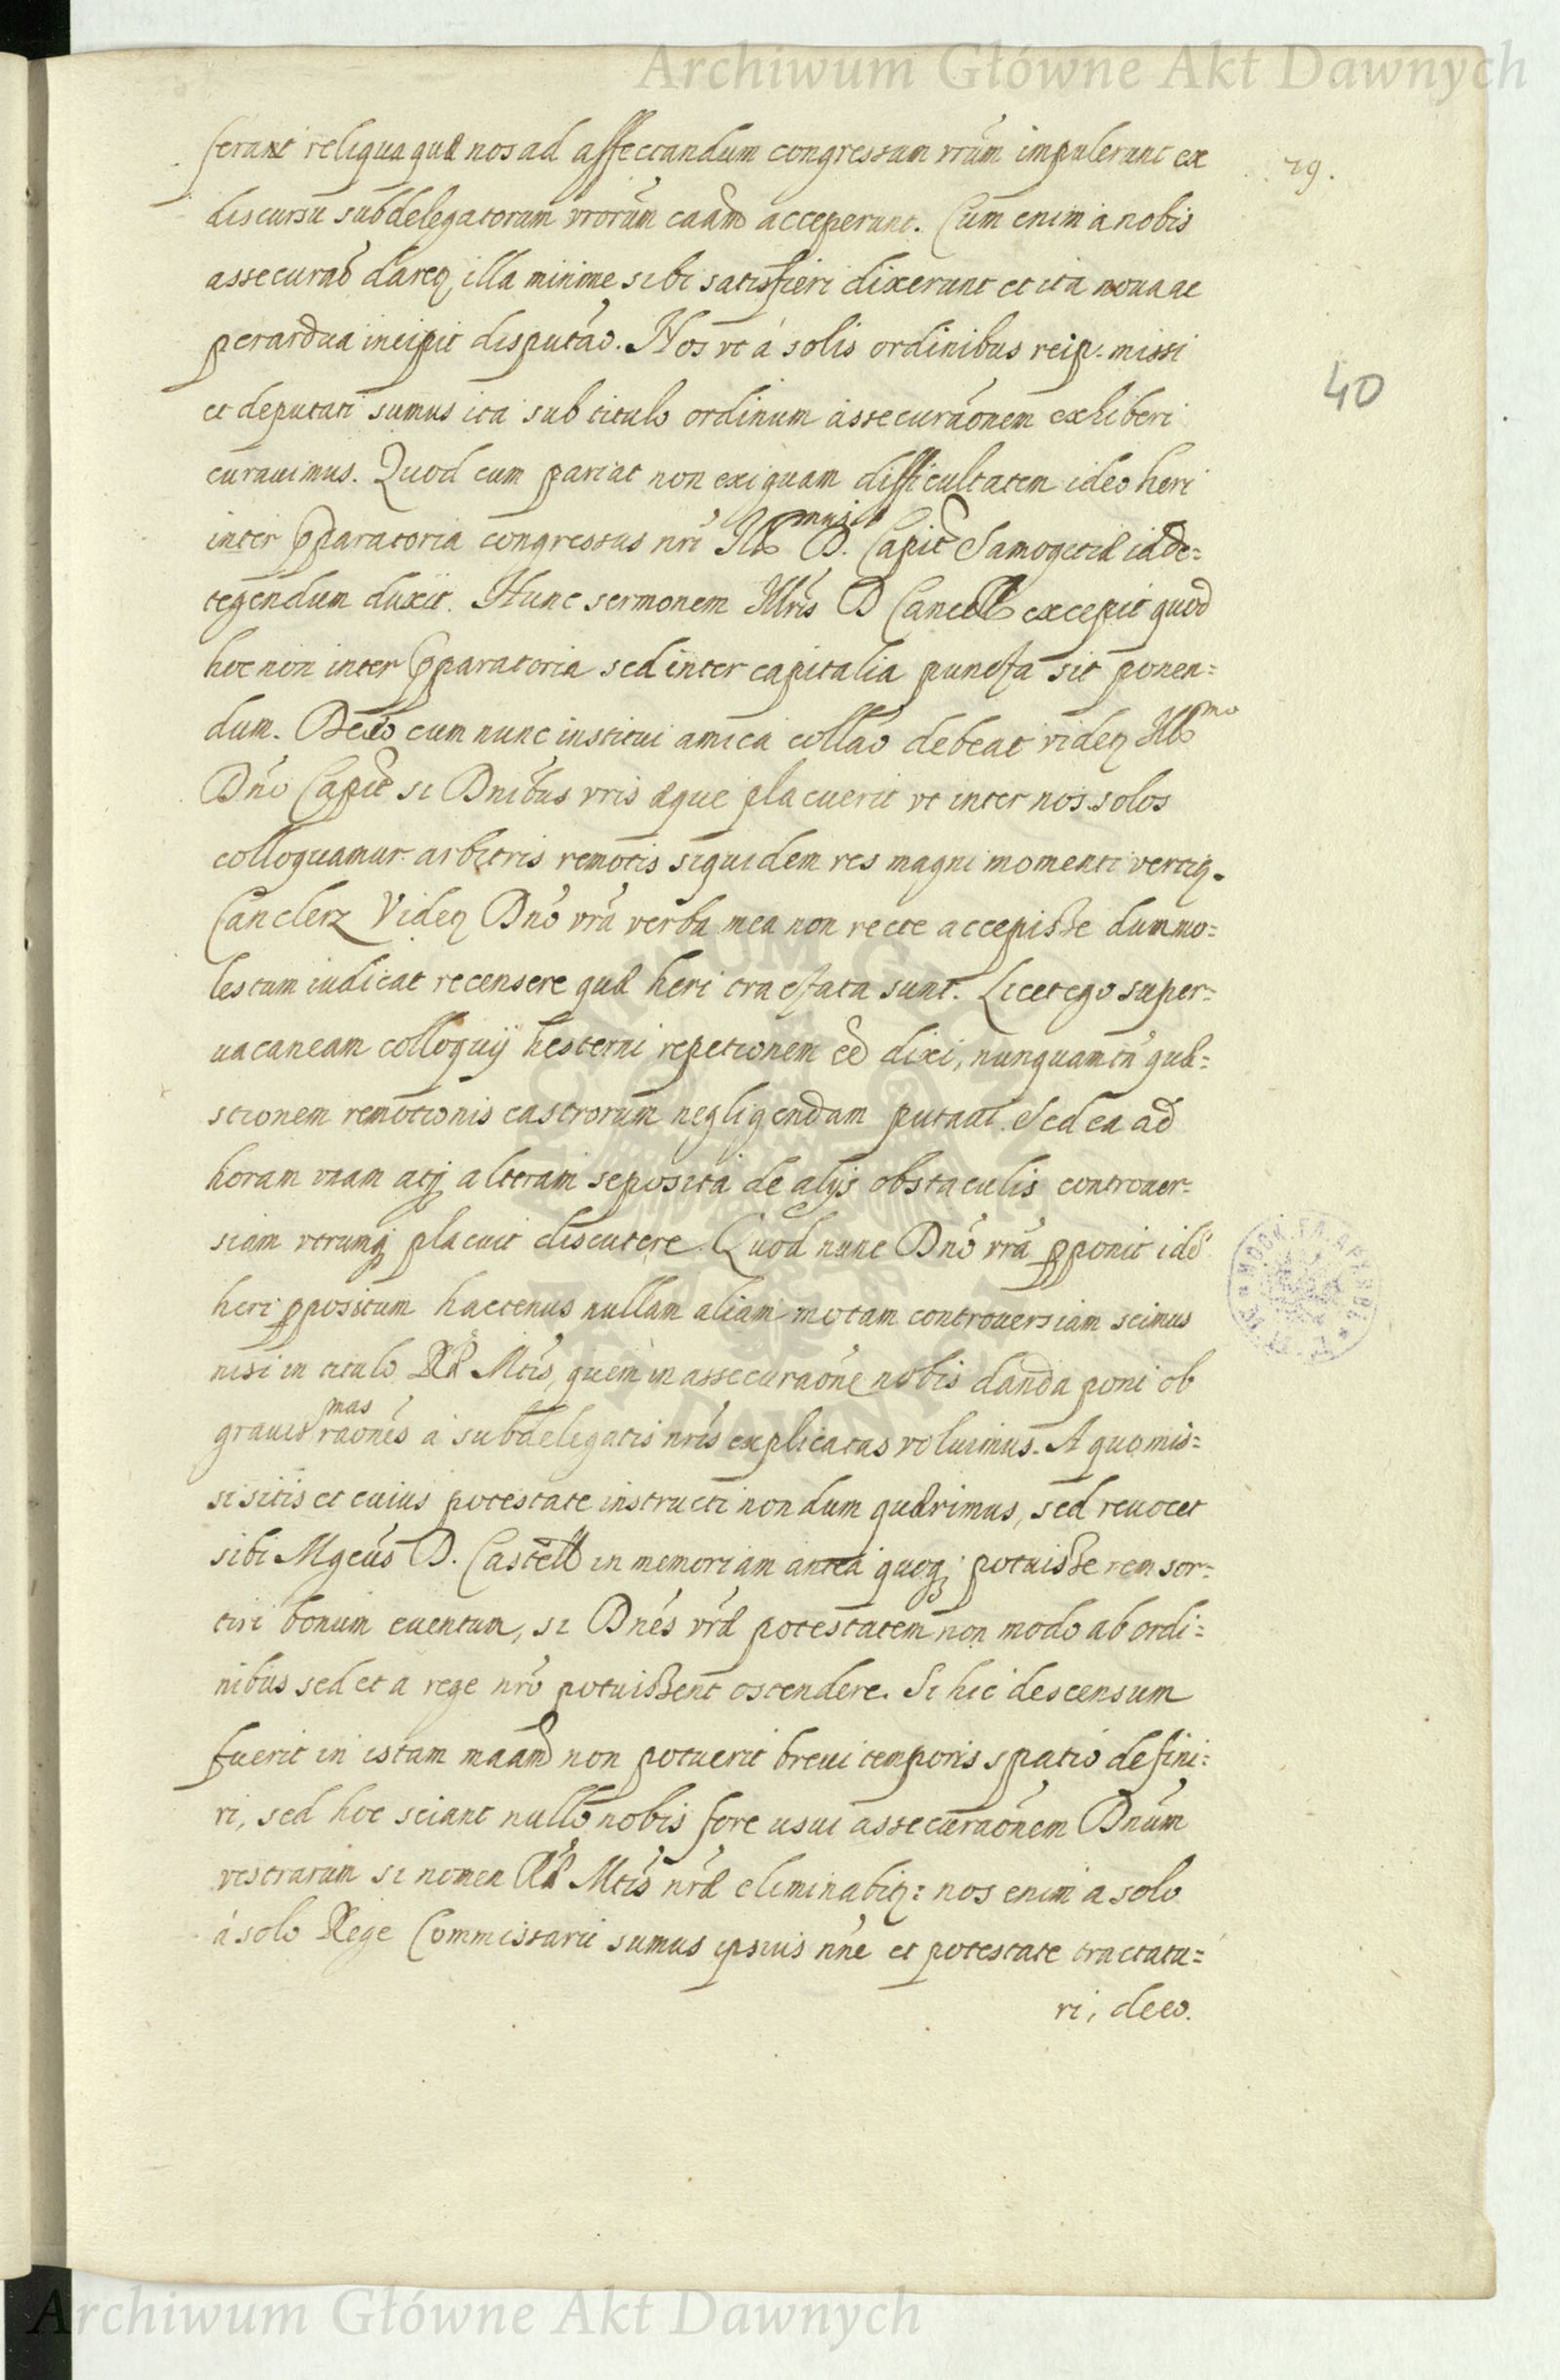 Archiwum Główne Akt Dawnych
ferant reliqua quæ nos ad affectandum congressum vrūm impulerunt ex
29.
discursu subdelegatorum vrorūm caām acceperunt. Cum enim a nobis
assecurāo dareq illa minime sibi satisfieri dixerunt et ita noua ac
perardua incipit disputāo. Nos vt á solis ordinibus reip. missi
40
et deputati sumus ita sub titulo ordinum assecurāonem exhiberi
curauimus. Quod cum pariat non exiguam difficultatem ideo heri
inter pparatoria congressus nrī Ill mus D. Capit Samogitiæ id de=
tegendum duxit. Hunc sermonem Illris D Cancell excepit quod
hoc non inter pparatoria sed inter capitalia puncta sit ponen=
dum. De eo cum nunc institui amica collāo debeat videq Ill mo
Dno Capit si Dnibus vris æque placuerit vt inter nos solos
colloquamur arbitris remotis siquidem res magni momenti vertiq.
Canclerz Videq Dnō vrā verba mea non recte accepisse dum mo=
lestum iudicat recensere quæ heri tractata sunt. Licet ego super=
uacaneam colloquij hesterni repetionem eē dixi, nunquam tn̄ quæ=
stionem remotionis castrorum negligendam putaui. Sed ea ad
horam vnam atq alteram seposita de alijs obstaculis controuer=
siam vtrumq placuit discutere. Quod nunc Dnō vrā pponit idē
heri ppositum hactenus nullam aliam motam controuersiam scimus
nisi in titulo RÆ Mtis, quem in assecuraōne nobis danda poni ob
grauis mas raōnes a subdelegatis nrīs explicatas voluimus. A quo mis=
si sitis et cuius potestate instructi nondum quærimus, sed reuocet
sibi Mgcus D. Castell in memoriam antea quoq; potuisse rem sor=
tiri bonum euentum, si Dnēs vræ potestatem non modo ab ordi=
nibus sed et a rege nrō potuissent ostendere. Si hic descensum
fuerit in istam maām non potuerit breui temporis spatio defini=
ri, sed hoc sciant nullo nobis fore usui assecuraōnem Dnūm
vestrarum si nomen RÆ Mtis nræ eliminabiq: nos enim a solo
á solo Rege Commissarii sumus ipsius nn̄e et potestate tractatu=
ri, de eo.
Archiwum Główne Akt Dawnych